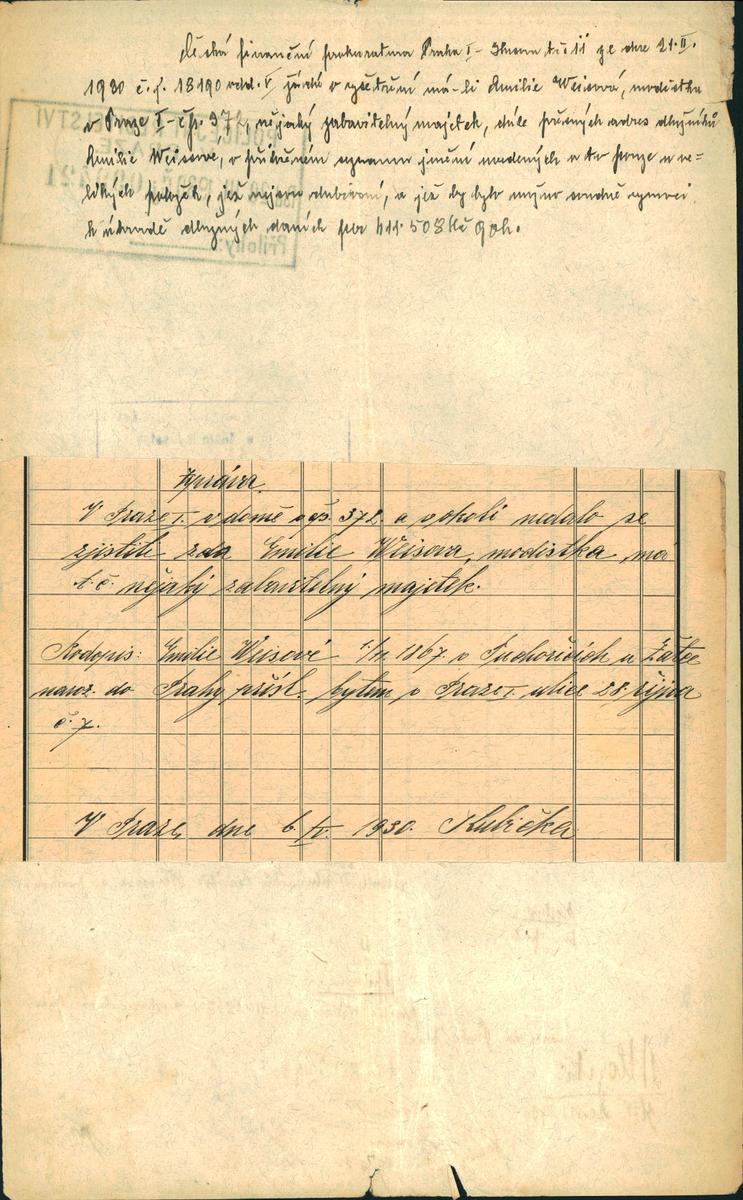 Česká finanční prokuratura Praha I - ze dne 21.II.
1930 č.j. 18190 odd. V žádá o vyšetření má-li Emilie Weisová, modistka
v Praze I - čp. 372, nějaký zabavitelný majetek, dále přesných adres dlužníků
Emilie Weisové, o případném seznamu jmění uvedených a to pouze u ve-
likých položek, jež nejsou dubiosní, a jež by bylo možno soudně vymoci
k úhradě dlužných daní per 411.508 Kč 9 h.
Zpráva.
V Praze I. v domě čp. 372. a okolí nedalo se
zjistiti zda Emilie Weisova, modistka má
t.č. nějaký zabavitelný majetek.
Rodopis: Emilie Weisové 1867. v Suchořicích u Žatce
naroz. do Prahy přísl. bytem v Praze I. ulice 28. října
č. 7.
V Praze, dne 6. 1930. Kubička
Přílohy: